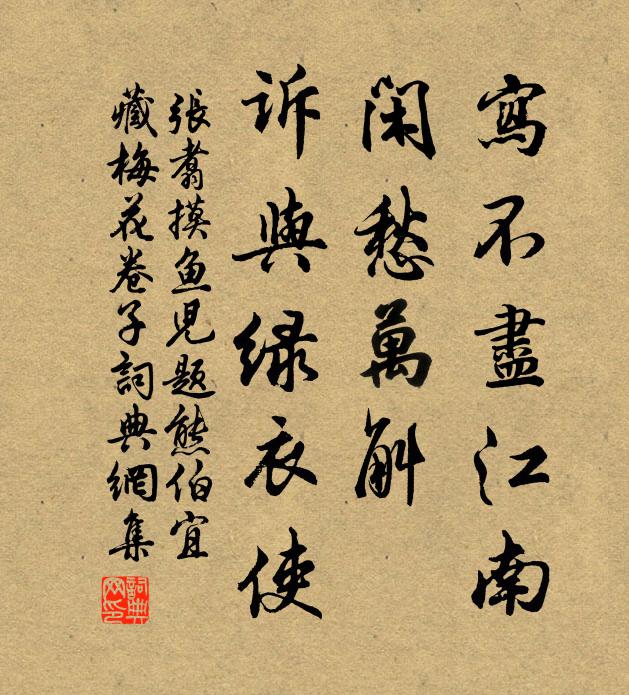 寫不盡江南
閑愁萬斛
訴與綠衣使
張翥摸魚兒題熊伯宜
藏梅花卷子詞典網集
詞典網印